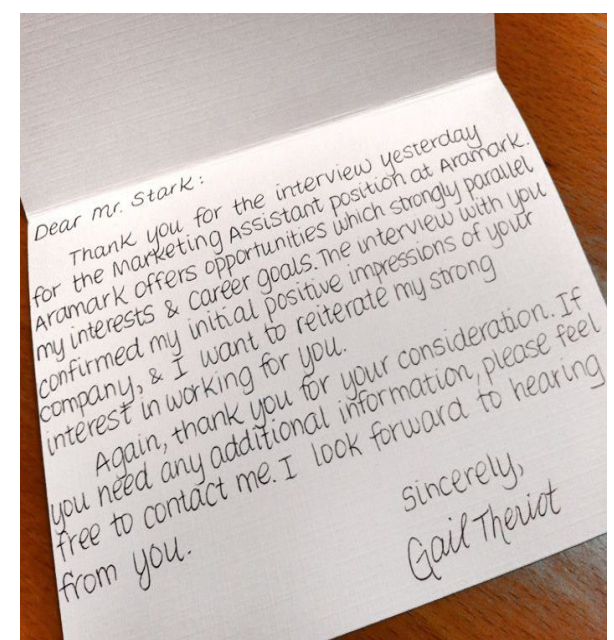 Dear Mr. Stark:
Thank you for the interview yesterday
for the Marketing Assistant position at Aramark.
Aramark offers opportunities which strongly parallel
my interests & career goals. The interview with you
confirmed my initial positive impressions of your
company, & I want to reiterate my strong
interest in working for you.
Again, thank you for your consideration. If
you need any additional information, please feel
free to contact me. I look forward to hearing
from you.
Sincerely,
Gail Theriot